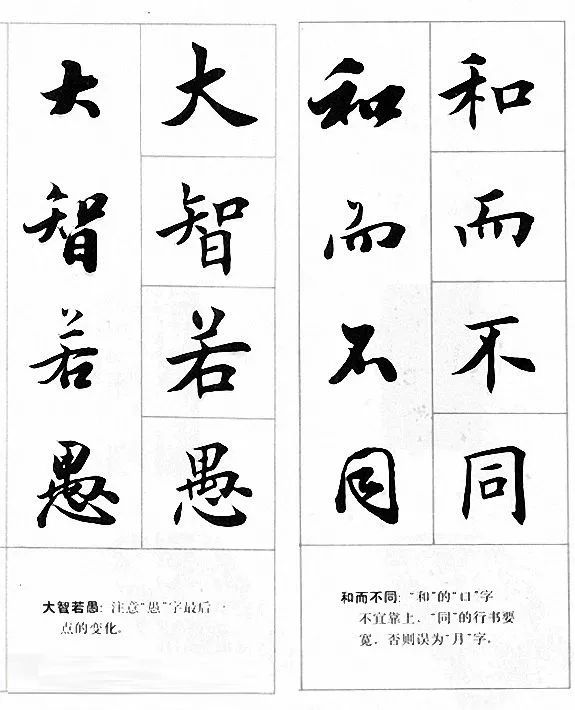 大智若愚
大智若愚
大智若愚：注意“愚”字最后一
点的变化。
和而不同
和而不同
和而不同：“和”的“口”字
不宜靠上，“同”的行书要
宽，否则误为“月”字。